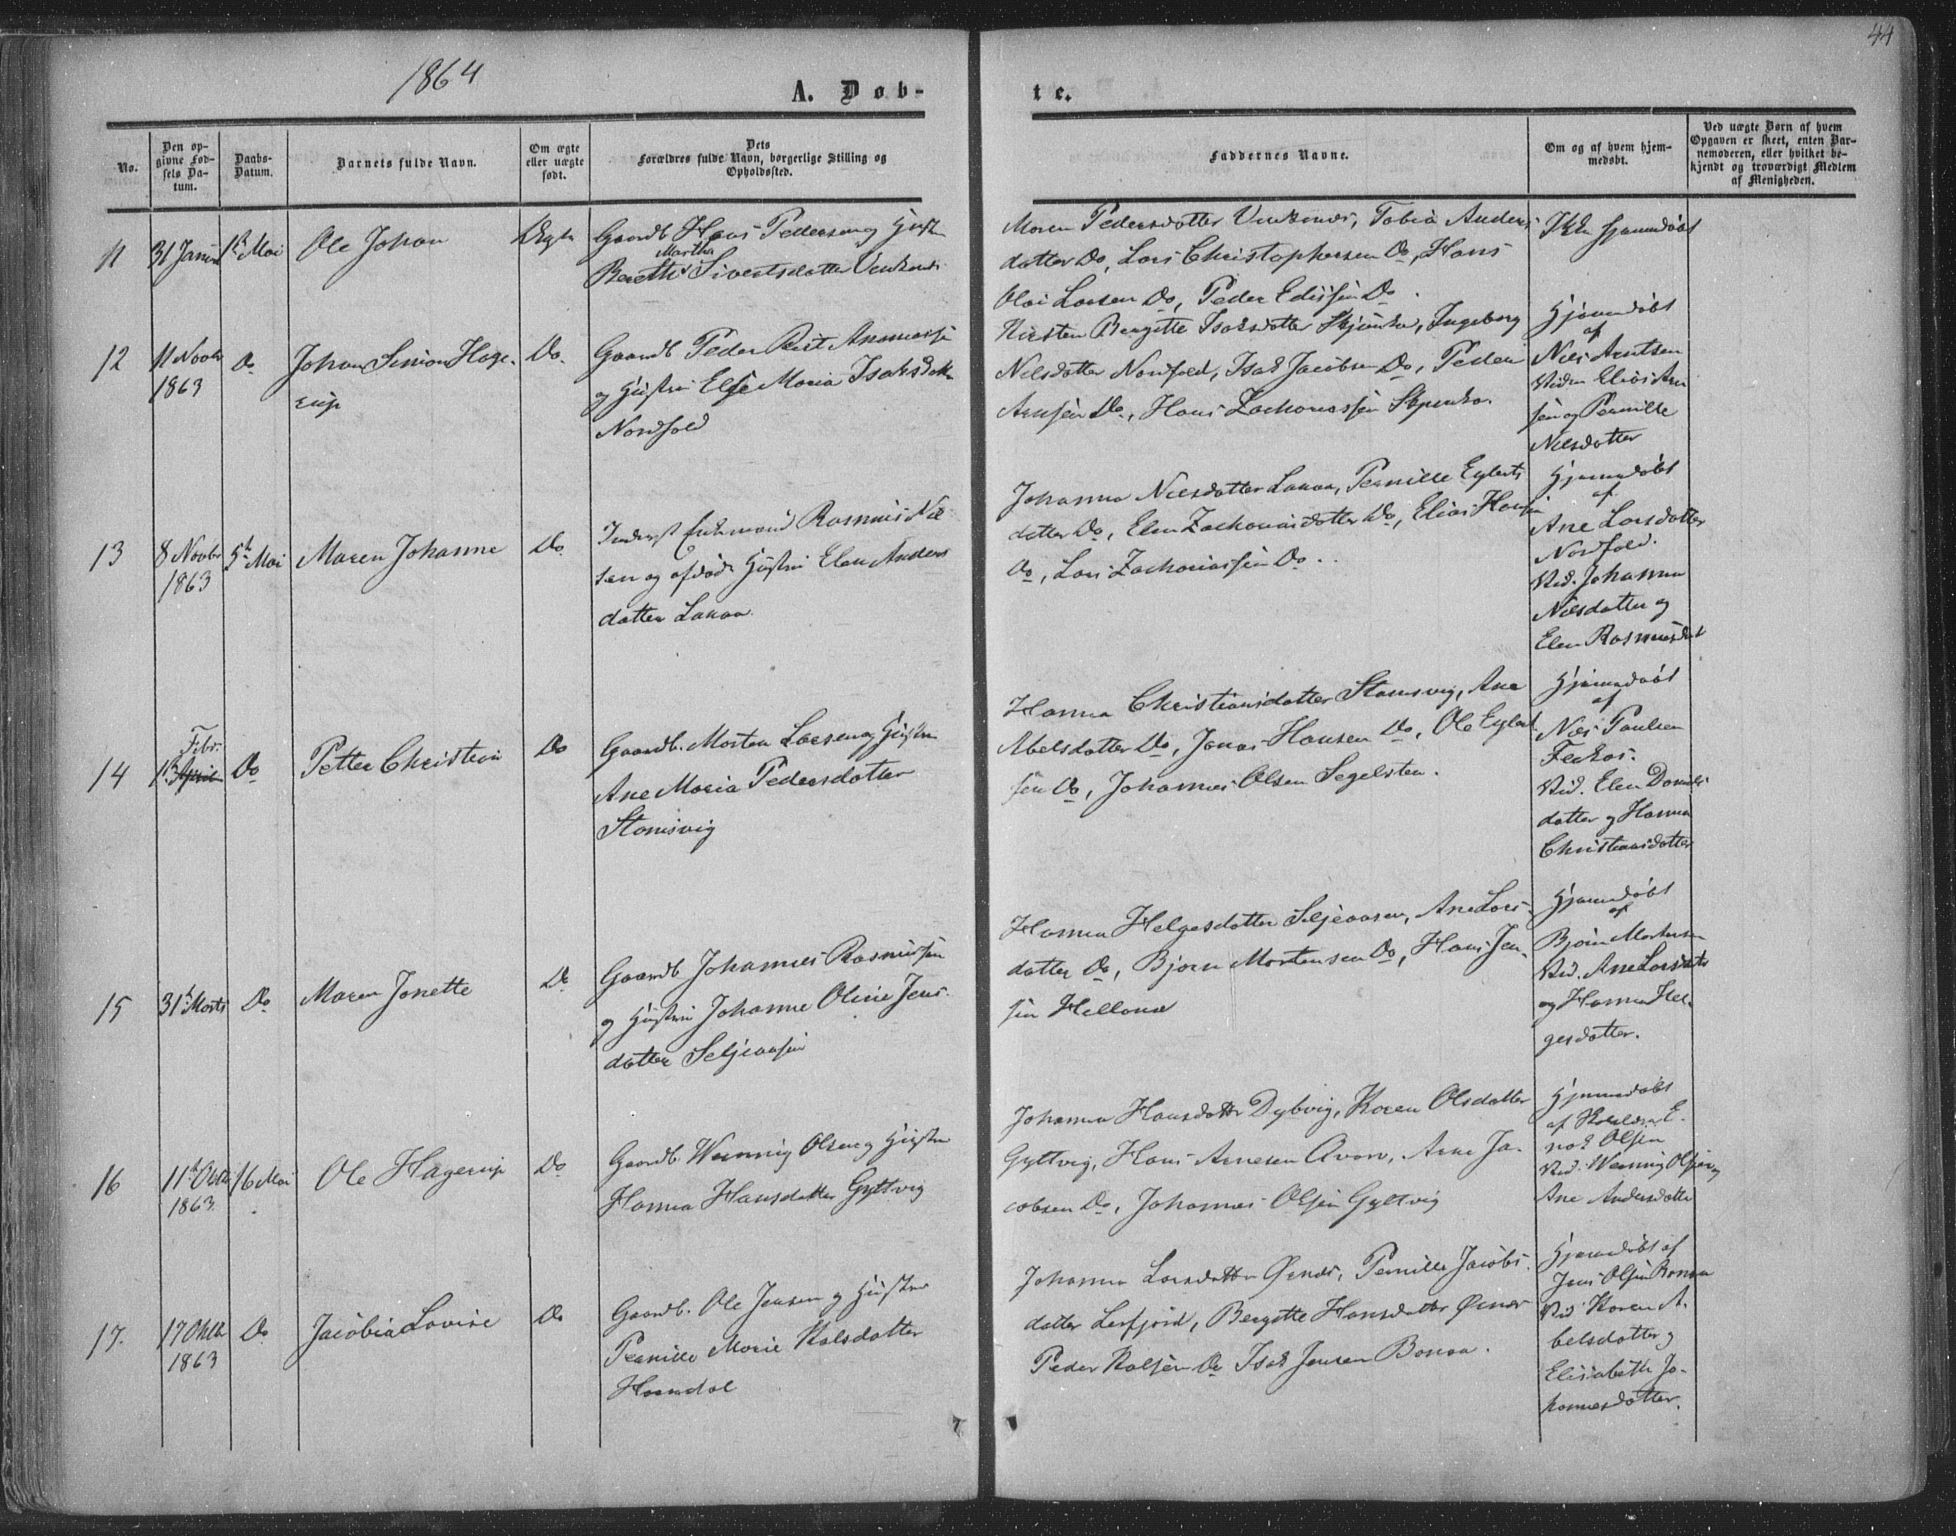 44
1864
A. Døb-
te.
No.
Den op-
givne Fød-
sels Da-
tum.
Daabs-
Datum.
Barnets fulde Navn.
Om ægte
eller uægte
født.
Dets
Forældres fulde Navn, borgerlige Stilling og
Opholdssted.
Faddernes Navne.
Om og af hvem hjem-
medøbt.
Ved uægte Børn af hvem
Opgaven er skeet, enten Bar-
nemoderen, eller hvilket be-
kjendt og troværdigt Medlem
af Menigheden.
11
31 Januar
1ste Mai
Ole Johan
Ægte
Gaardb. Hans Pedersen og Hustr
Martha
Berethe Sivertsdatter
Maren Pedersdatter Tobia Anders
datter Do, Lars Christophersen Do, Hans
Olai Larsen Do, Peder Do.
Ikke hjemmedøbt
12
11 Novbr
1863
Do
Johan Simon Hage-
rup
Do.
Gaardb Peder
og Hustru Else Maria Isaksdatt
Nordfold
Kirsten Bergitte Isaksdatter Ingeborg
Nilsdatter Nordfold, Isak Jacobsen Do, Peder
Arnsen Do, Hans Zachariassen
Hjemmedøbt
af
Nils Arntsen
Viden Elias Arn
sen og Pernille
Nilsdatter
13
8 Novbr
1863
5te Mai
Maren Johanne
Do
Inderst Enkemand Rasmus Nil
sen og afdøde Hustru Elen Anders
datter Lakaa
Johanna Nilsdatter Lakaa, Pernille Eylerts
datter Do, Elen Zachariasdatter Do, Elias Hansen
Do, Lars Zachariassen Do.
Hjemmedøbt
af
Ane Larsdatter
Nordfold.
Vid. Johanna
Nilsdatter og
Elen Rasmusdat
14
Febr.
13 April
Do
Petter Christian
Do
Gaardb. Morten Larsen og Hustru
Ane Maria Pedersdatter
Stamsvig
Hanna Christiansdatter Stamsvig, Ane
Abelsdatter Do, Jonas Hansen Do, Ole Eylert
sen Do, Johannes Olsen Segelsten.
Hjemmedøbt
af
Nils Paulsen
Vid. Elen Daniels
datter og Hanna
Christiansdatter
15
31te Marts
Do
Maren Jonette
Do
Gaardb Johannes Rasmussen
og Hustru Johanne Oline Jens
datter Seljeaasen
Hanna Helgesdatter Seljeaasen, Ane Lars-
datter Do, Bjørn Mortensen Do, Hans Jen-
sen
Hjemmedøbt
af
Bjørn Mortensen
Vid. Ane Larsdatter
og Hanna Hel-
gesdatter.
16
11te Octbr
1863
16 Mai
Ole Hagerup
Do
Gaardb. Wenning Olsen og Hustru
Hanna Hansdatter Gyltvig
Johanna Hansdatter Dybvig, Karen Olsdatter
Gyltvig, Hans Arnesen Arne Ja-
cobsen Do, Johannes Olsen Gyltvig
Hjemmedøbt
af E-
nok Olsen
Vid. Wenning Olsen og
Ane Andersdatter
17.
17 Octbr
1863
Do
Jacobia Lovise
Do
Gaardb. Ole Jensen og Hustru
Pernille Marie
Johanna Larsdatter Ørnes, Pernille Jacobs
datter Leifjord, Bergitte Hansdatter Ørnes
Peder Do Isak Jensen Bonaa.
Hjemmedøbt af
Jens Olsen Bonaa
Vid Karen A-
belsdatter og
Elisabeth Jo-
hannesdatter.